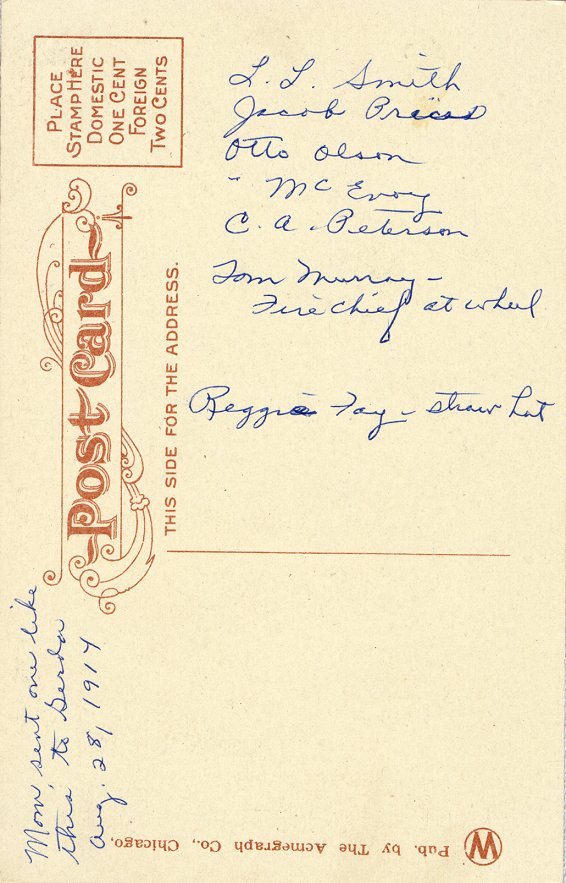 PLACE
STAMP HERE
DOMESTIC
ONE CENT
FOREIGN
TWO CENTS
Post Card
THIS SIDE FOR THE ADDRESS.
L. L. Smith
Jacob
Otto Olson
" McEvoy
C. A. Peterson
Tom Murray -
Fire chief at wheel
Reggie Fay - straw hat
Mom sent one like
this to Gerda
Aug. 28, 1914
W Pub. by The Acmegraph Co., Chicago.